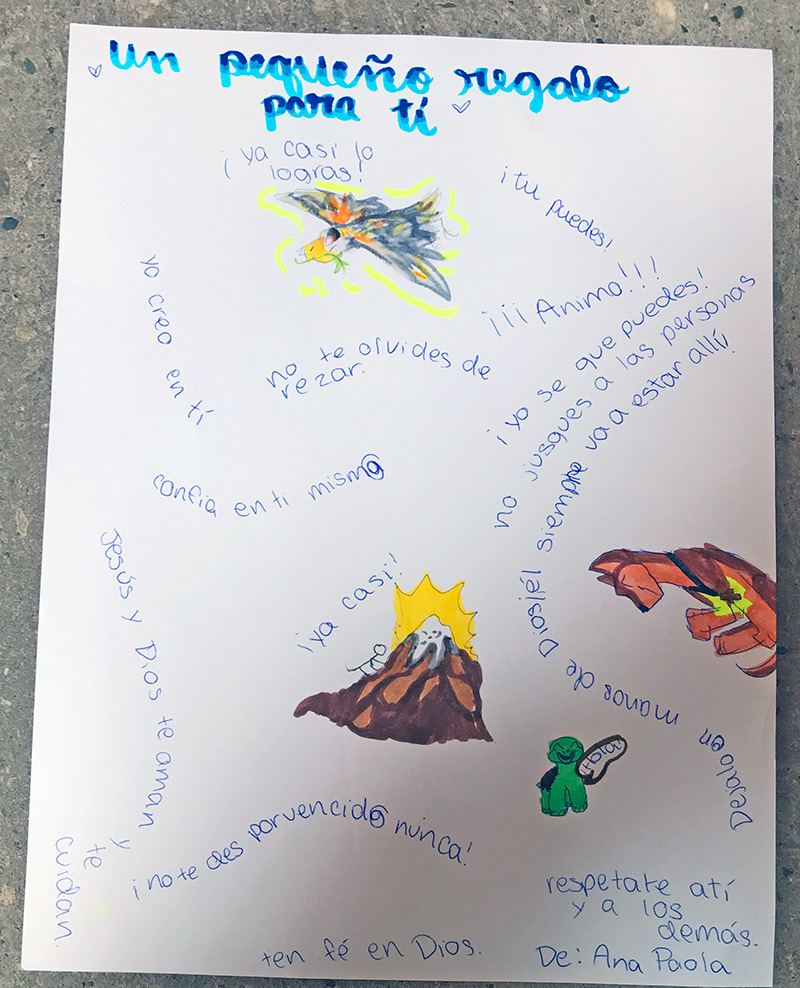 un pequeño regalo
para tí
¡ya casi lo
logras!
¡tu puedes!
yo creo en tí
¡¡¡Animo!!!
no te olvides de
rezar.
¡yo se que puedes!
no jusgues a las personas
Dejalo en manos de Dios¡él siempre va a estar allí!
confia en ti mism@
¡ya casi!
Jesús y Dios te aman
y
te
cuidan.
Hola
¡no te des por vencid@ nunca!
respetate atí
y a los
demás.
ten fé en Dios.
De: Ana Paola